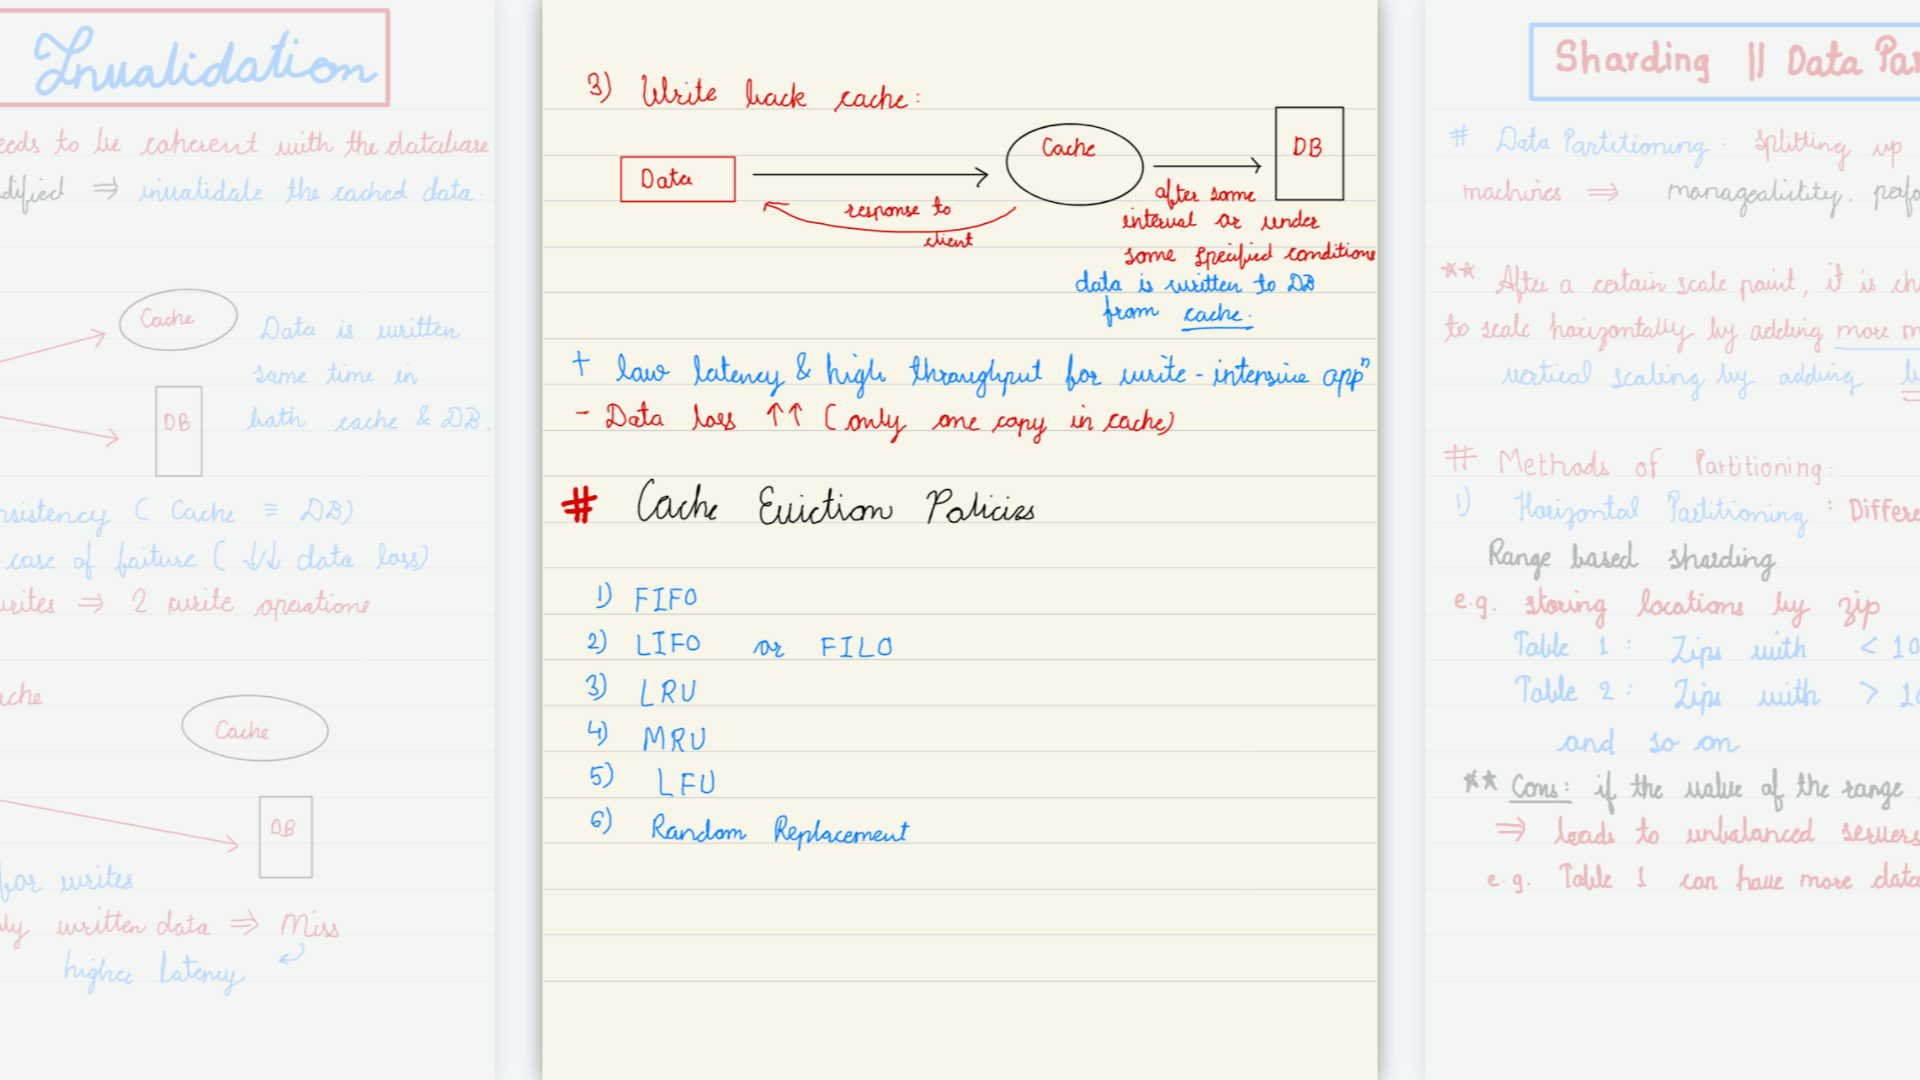 Invalidation
eeds to be coherent with the database
dified ⇒ invalidate the cached data.
Cache
Data is written
same time in
both cache & DB.
DB
nsistency ( Cache ≡ DB)
case of faiture ( ↓↓ data loss)
writes ⇒ 2 write operations
ache
Cache
DB
for writes
ly written data ⇒ Miss
higher latency
3) Write back cache:
Data
Cache
DB
response to
client
after some
interval or under
some specified conditions
data is written to DB
from cache.
+ low latency & high throughput for write-intensive appⁿ
- Data loss ↑↑ (only one copy in cache)
# Cache Eviction Policies
1) FIFO
2) LIFO or FILO
3) LRU
4) MRU
5) LFU
6) Random Replacement
Sharding || Data Par
# Data Partitioning: Splitting up
machines ⇒ manageability, perfo
** After a certain scale point, it is ch
to scale horizontally by adding more m
vertical scaling by adding
# Methods of Partitioning:
1) Horizontal Partitioning : Differe
Range based sharding
e.g. storing locations by zip
Table 1 : Zips with < 10
Table 2 : Zips with > 10
and so on
** Cons: if the value of the range
⇒ leads to unbalanced servers
e.g. Table 1 can have more data